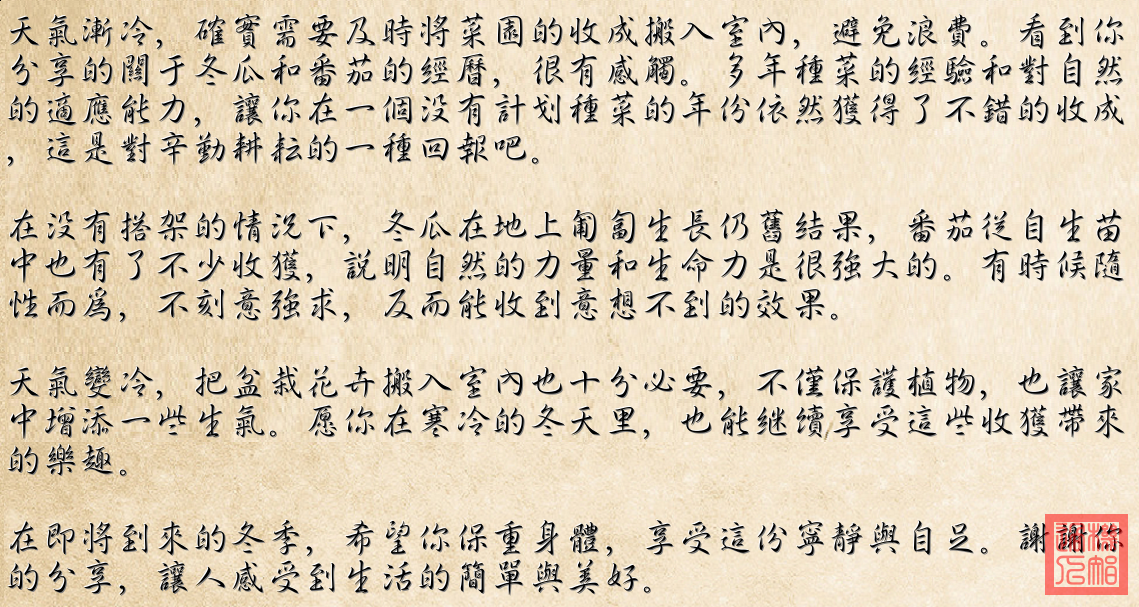 天氣漸冷，確實需要及時將菜園的收成搬入室內，避免浪費。看到你
分享的關于冬瓜和番茄的經曆，很有感觸。多年種菜的經驗和對自然
的適應能力，讓你在一個没有計划種菜的年份依然獲得了不錯的收成
，這是對辛勤耕耘的一種回報吧。
在没有搭架的情況下，冬瓜在地上匍匐生長仍舊结果，番茄從自生苗
中也有了不少收獲，説明自然的力量和生命力是很強大的。有時候隨
性而爲，不刻意強求，反而能收到意想不到的效果。
天氣變冷，把盆栽花卉搬入室內也十分必要，不僅保護植物，也讓家
中增添一些生氣。愿你在寒冷的冬天里，也能继续享受這些收獲帶來
的樂趣。
在即將到來的冬季，希望你保重身體，享受這份寧靜與自足。謝謝你
的分享，讓人感受到生活的簡單與美好。